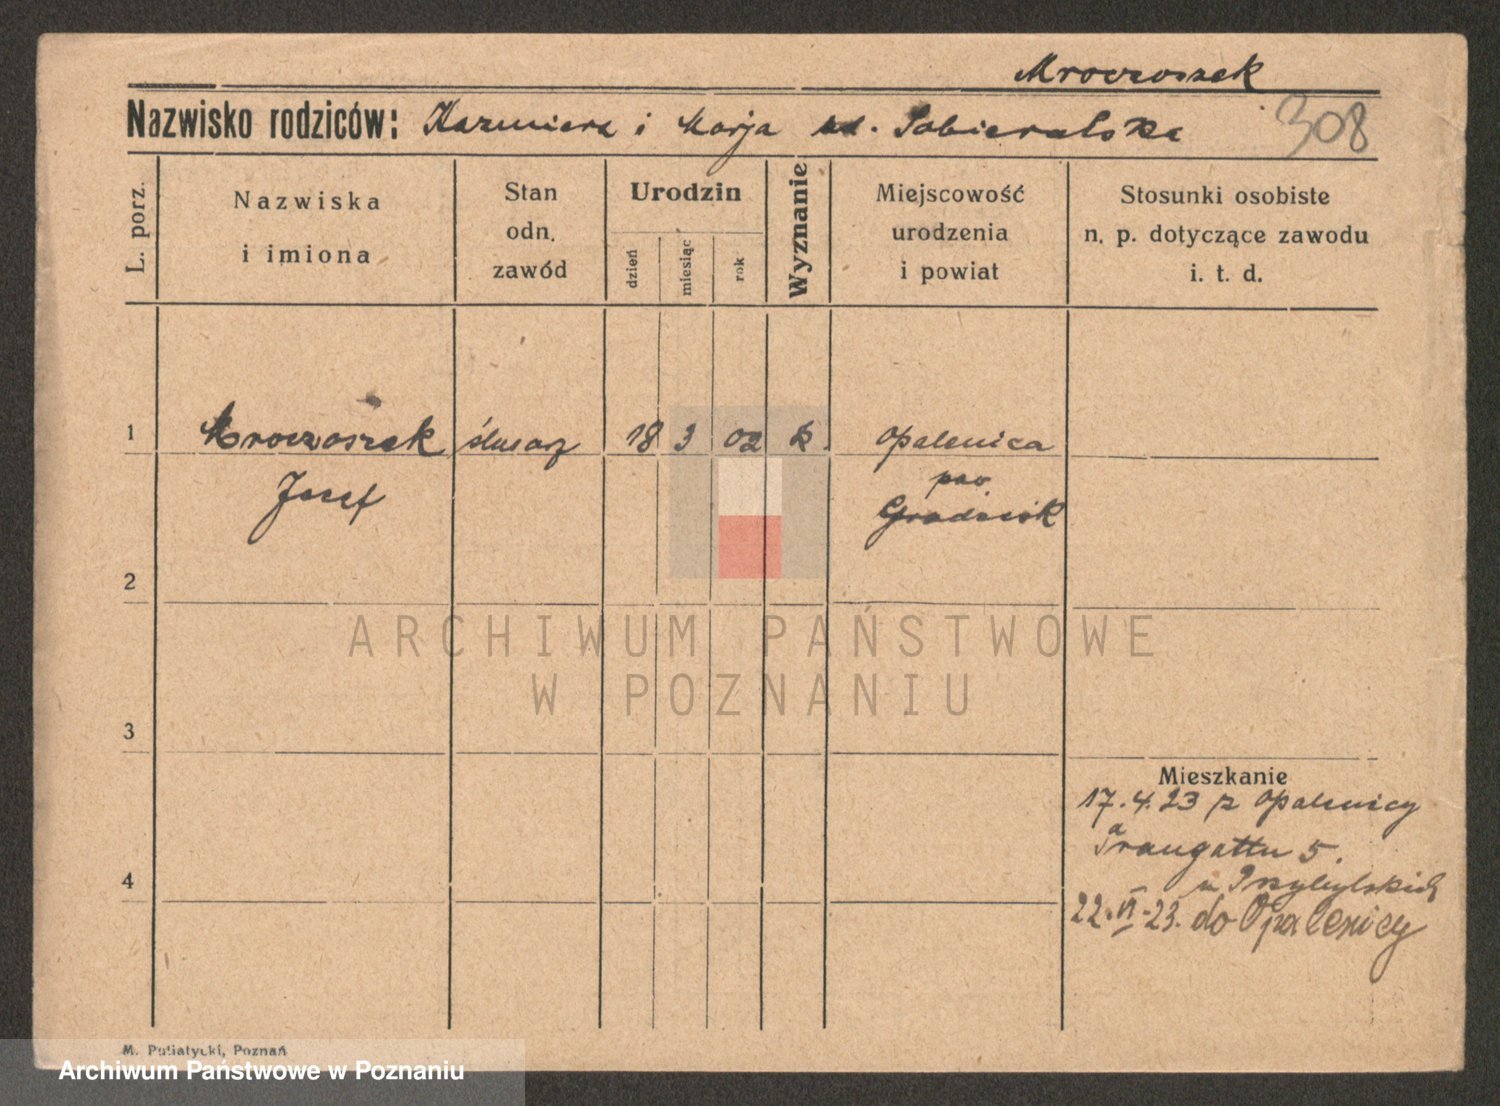 Mroczoszek
Nazwisko rodziców: Kazmierz i Marja Sobieralska
308
L. porz.
Nazwiska
i imiona
Stan
odn.
zawód
Urodzin
dzień
miesiąc
rok
Wyznanie
Miejscowość
urodzenia
i powiat
Stosunki osobiste
n. p. dotyczące zawodu
i. t. d.
1 Mroczoszek ślusarz 18 3 02 k. Opalenica
Josef
pow.
Grodzisk
2
ARCHIWUM PAŃSTWOWE
W POZNANIU
3
Mieszkanie
17.4.23 z Opalenicy
Traugutta 5.
u Przybylskich
4
22.VI.23. do Opalenicy
M. Putiatycki, Poznań
Archiwum Państwowe w Poznaniu